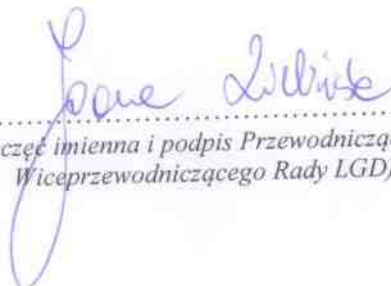 ........................................
częć imienna i podpis Przewodniczą
Wiceprzewodniczącego Rady LGD)